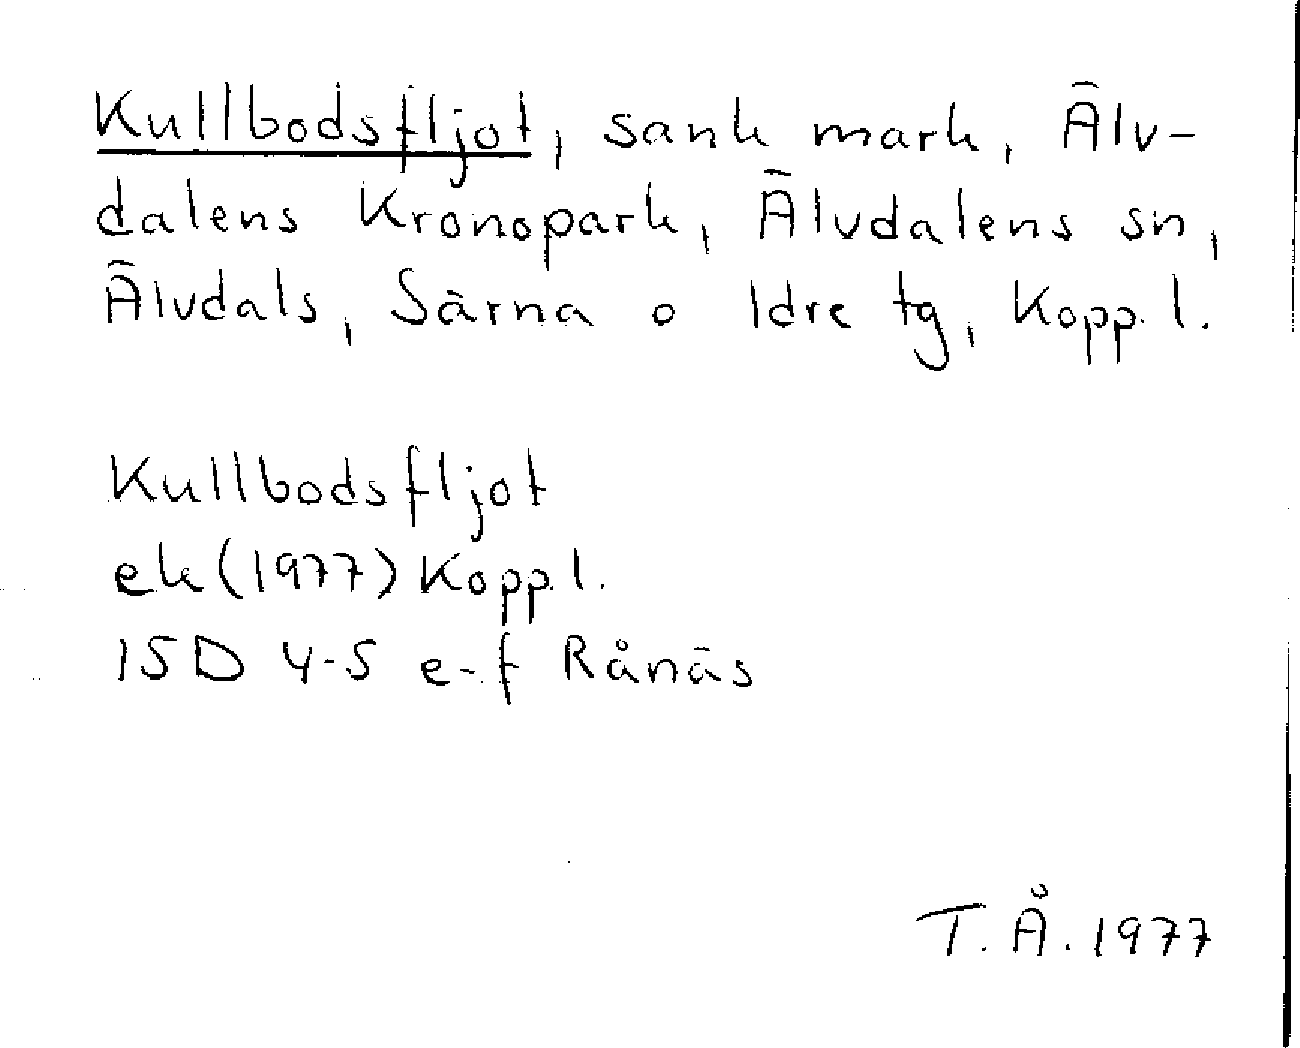 Kullbodsfljot, sank mark, Älv-
dalens Kronopark, Älvdalens sn,
Älvdals, Särna o Idre tg, Kopp. l.
Kullbodsfljot
ek (1977) Kopp. l.
15D 4-5 e-f Rånäs
T. Å. 1977